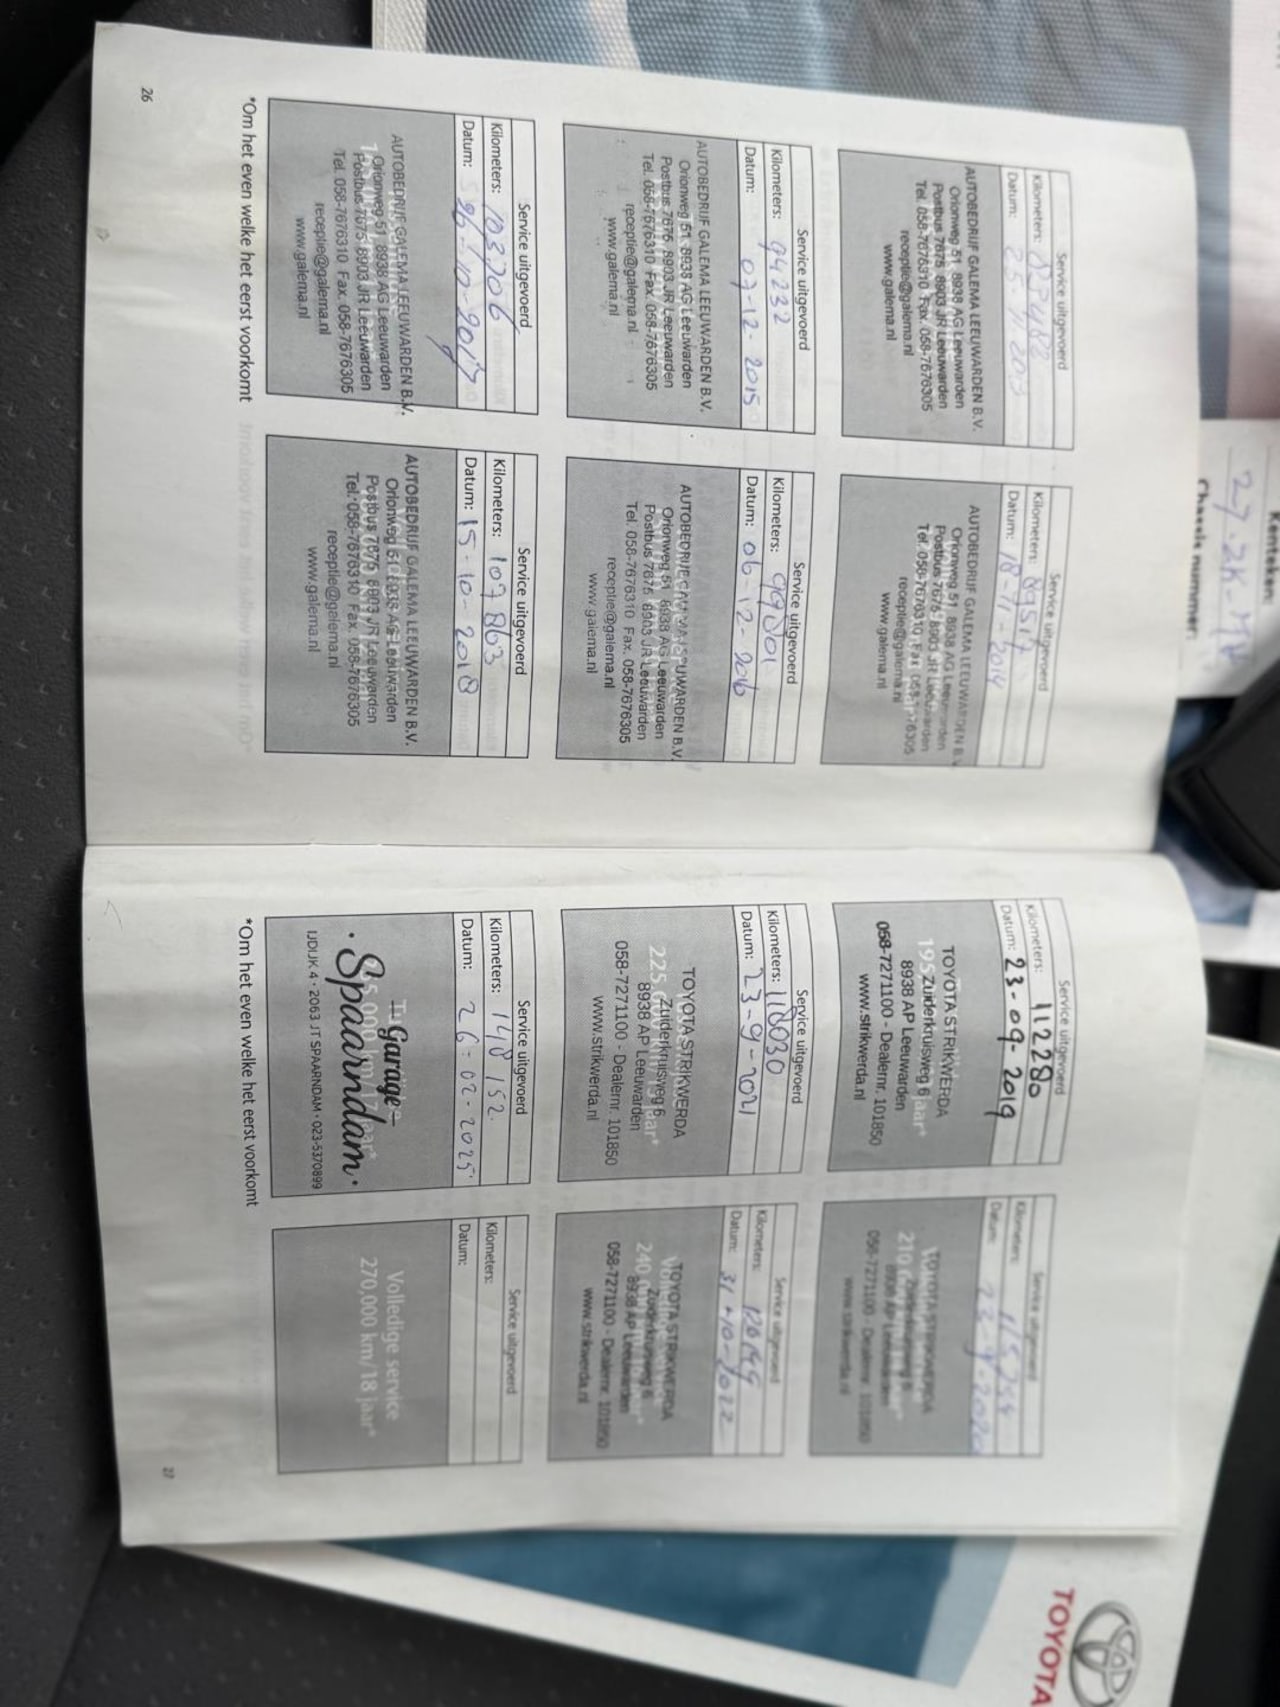 Service uitgevoerd
Kilometers:
Datum:
AUTOBEDRIJF GALEMA LEEUWARDEN B.V.
Orionweg 51 8938 AG Leeuwarden
Postbus 7675 8903 JR Leeuwarden
Tel. 058-7676310 Fax. 058-7676305
receptie@galema.nl
www.galema.nl
Service uitgevoerd
Kilometers: 89517
Datum: 18-11-2014
AUTOBEDRIJF GALEMA LEEUWARDEN B.V.
Orionweg 51 8938 AG Leeuwarden
Postbus 7675 8903 JR Leeuwarden
Tel. 058-7676310 Fax 058-7676305
receptie@galema.nl
www.galema.nl
Service uitgevoerd
Kilometers: 94232
Datum: 07-12-2015
AUTOBEDRIJF GALEMA LEEUWARDEN B.V.
Orionweg 51 8938 AG Leeuwarden
Postbus 7675 8903 JR Leeuwarden
Tel. 058-7676310 Fax. 058-7676305
receptie@galema.nl
www.galema.nl
Service uitgevoerd
Kilometers: 99801
Datum: 06-12-2016
AUTOBEDRIJF GALEMA LEEUWARDEN B.V.
Orionweg 51 8938 AG Leeuwarden
Postbus 7675 8903 JR Leeuwarden
Tel. 058-7676310 Fax. 058-7676305
receptie@galema.nl
www.galema.nl
Service uitgevoerd
Kilometers: 103706
Datum: 26-10-2017
AUTOBEDRIJF GALEMA LEEUWARDEN B.V.
Orionweg 51 8938 AG Leeuwarden
Postbus 7675 8903 JR Leeuwarden
Tel. 058-7676310 Fax. 058-7676305
receptie@galema.nl
www.galema.nl
Service uitgevoerd
Kilometers: 109863
Datum: 15-10-2018
AUTOBEDRIJF GALEMA LEEUWARDEN B.V.
Orionweg 51 8938 AG Leeuwarden
Postbus 7675 8903 JR Leeuwarden
Tel. 058-7676310 Fax. 058-7676305
receptie@galema.nl
www.galema.nl
*Om het even welke het eerst voorkomt
26
Service uitgevoerd
Kilometers: 112280
Datum: 23-09-2019
TOYOTA STRIKWERDA
Zuiderkruisweg 6
8938 AP Leeuwarden
058-7271100 - Dealernr. 101850
www.strikwerda.nl
Service uitgevoerd
Kilometers: 115254
Datum: 23-9-2020
TOYOTA STRIKWERDA
Zuiderkruisweg 6
8938 AP Leeuwarden
058-7271100 - Dealernr. 101850
www.strikwerda.nl
Service uitgevoerd
Kilometers: 118030
Datum: 23-9-2021
TOYOTA STRIKWERDA
Zuiderkruisweg 6
8938 AP Leeuwarden
058-7271100 - Dealernr. 101850
www.strikwerda.nl
Service uitgevoerd
Kilometers:
Datum: 31-10-2022
TOYOTA STRIKWERDA
Zuiderkruisweg 6
8938 AP Leeuwarden
058-7271100 - Dealernr. 101850
www.strikwerda.nl
Service uitgevoerd
Kilometers: 148152
Datum: 26-02-2025
Garage
Spaarndam
IJDIJK 4 • 2063 JT SPAARNDAM • 023-5370899
Service uitgevoerd
Kilometers:
Datum:
Volledige service
270,000 km/18 jaar*
*Om het even welke het eerst voorkomt
27
Kenteken:
Chassis nummer:
TOYOTA